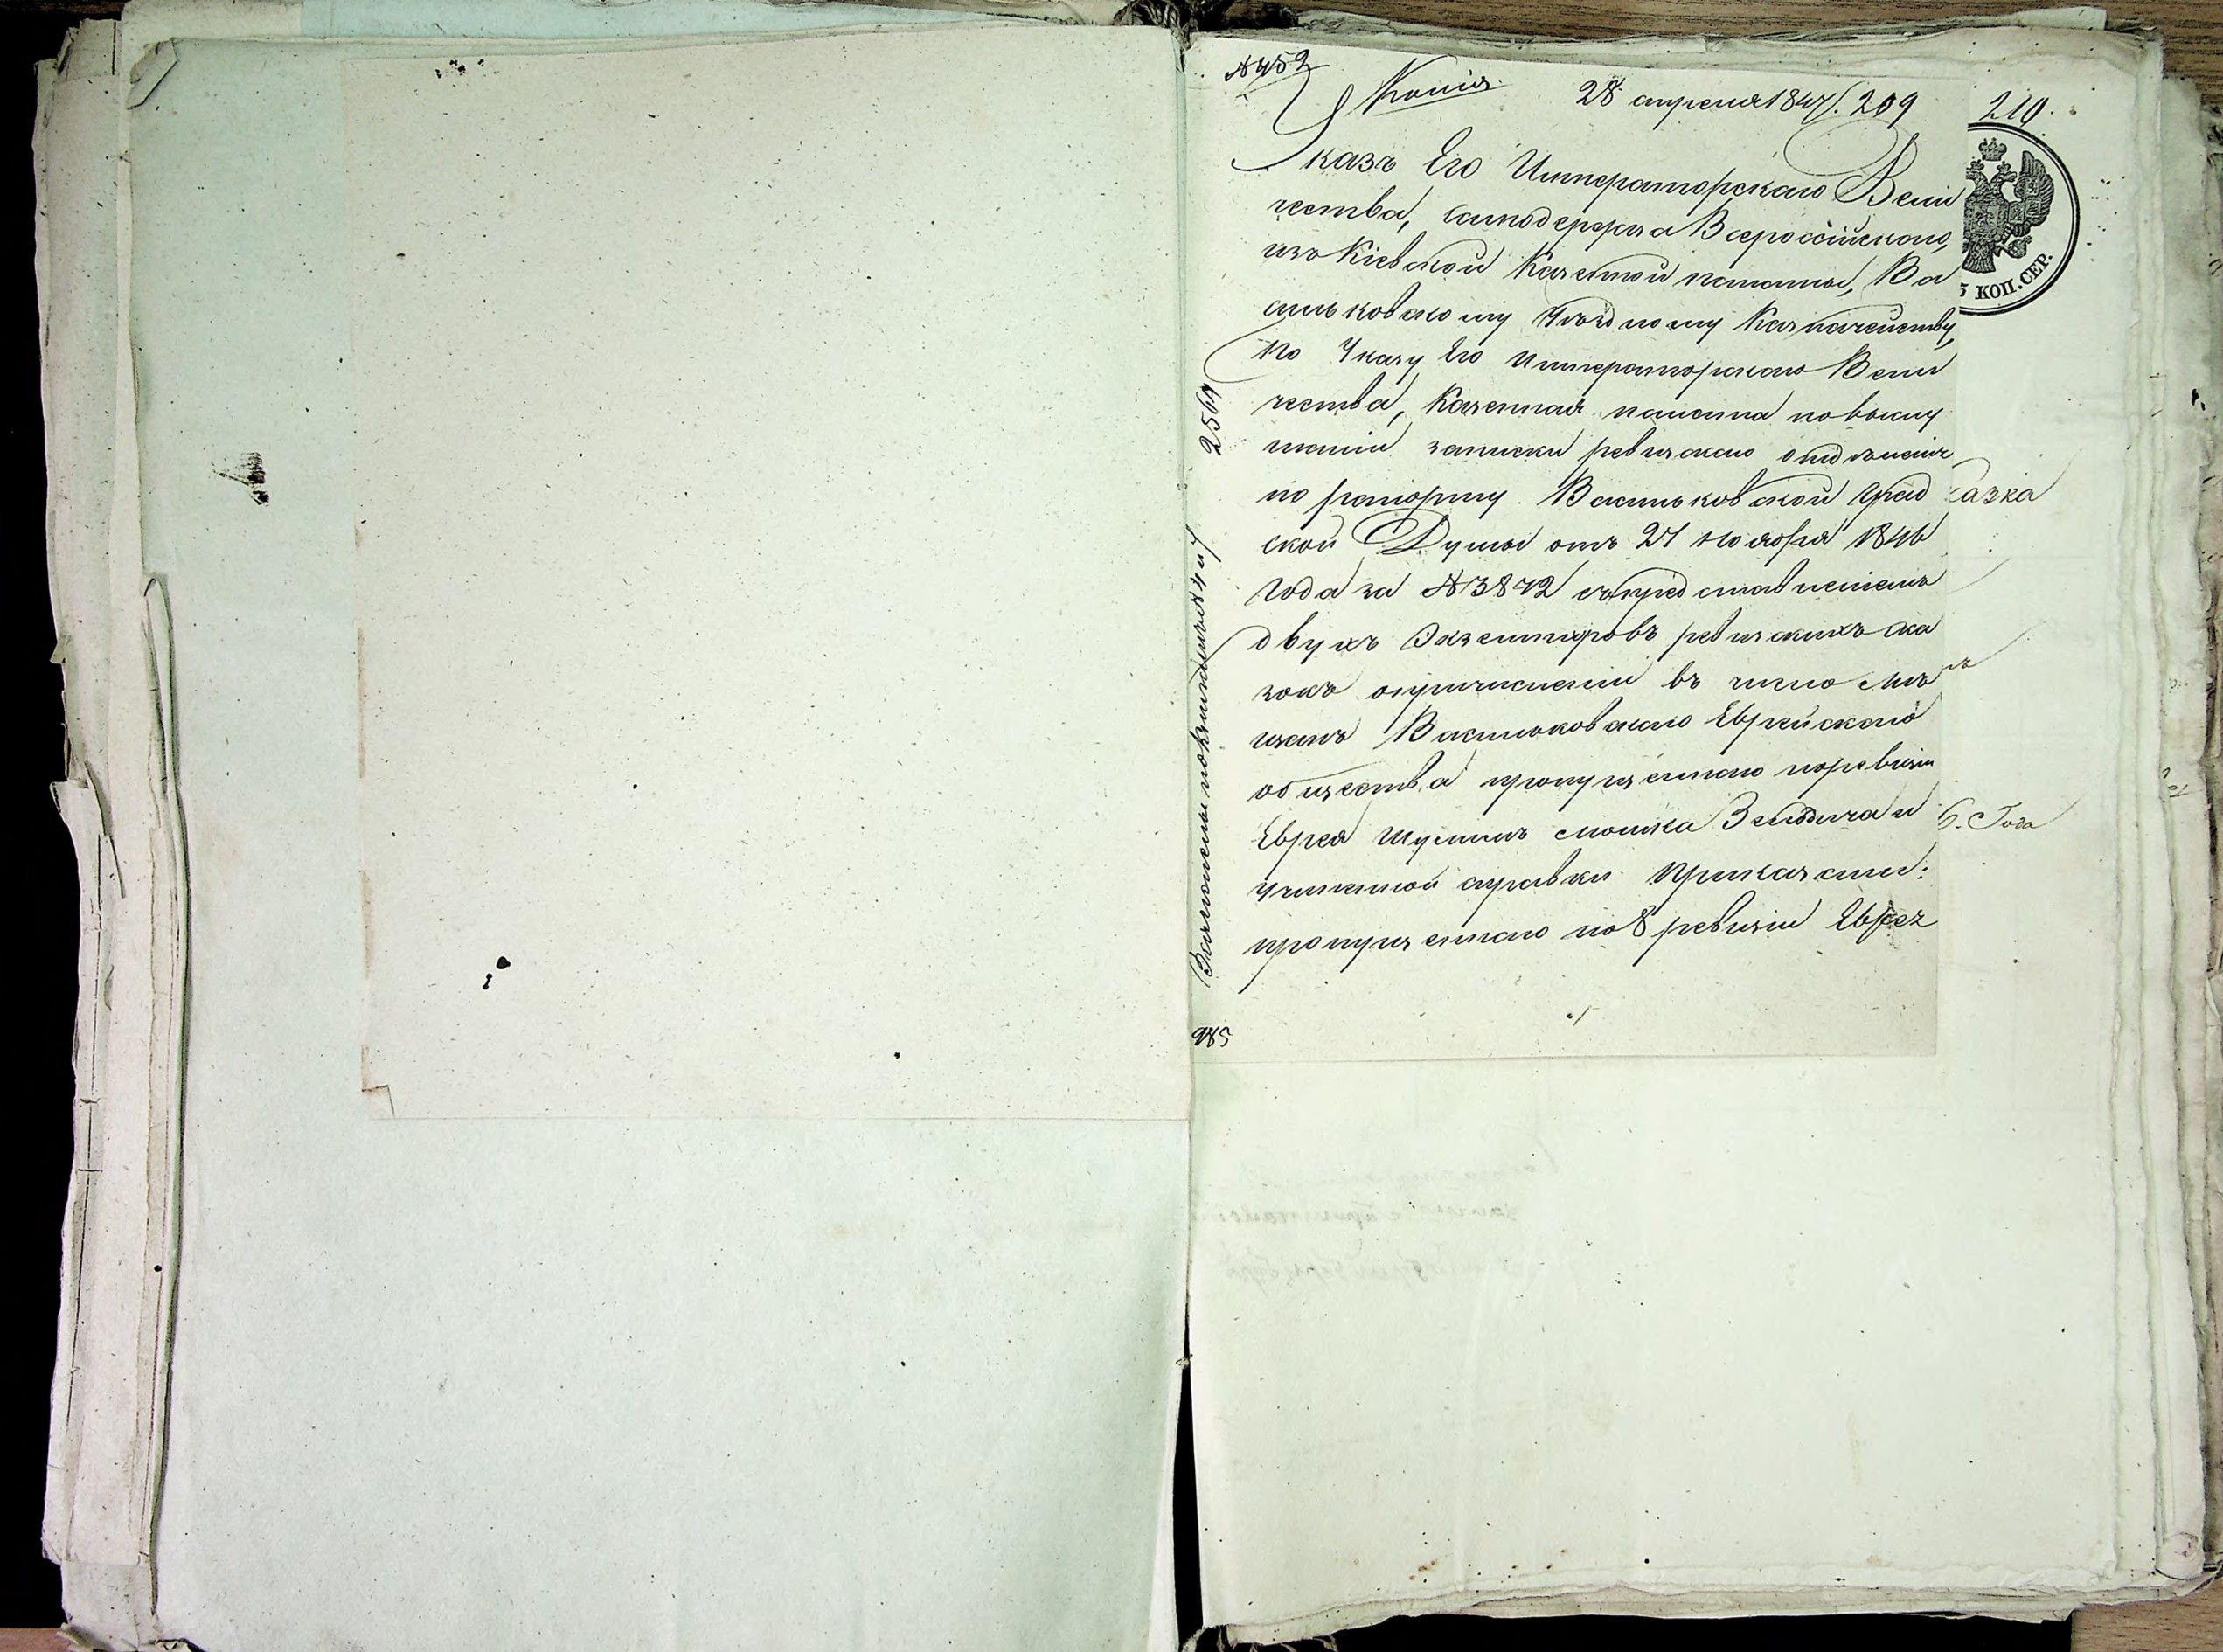 № 452
Копія 28 апреля 1847. 209 210.
Указъ Его Императорскаго Вели
чества, самодержца Всероссійскаго,
изъ Кіевской Казенной палаты, Ва
сильковскому Уѣздному Казначейству,
По Указу Его Императорскаго Вели
чества, Казенная палата по выслу
шаніи записки ревизскаго отдѣленія
по рапорту Васильковской Град
ской Думы отъ 27 ноября 1846
года за № 3872 съ представленіемъ
двухъ Экземпляровъ ревизскихъ ска
зокъ о причисленіи въ число мѣ
щанъ Васильковскаго Еврейскаго
общества пропущеннаго по ревизіи
Еврея Шулима Мошка и
учиненной справки Приказали:
пропущеннаго по 8 ревизіи Еврея
2564
985
5 КОП. СЕР.
азка
6. Года